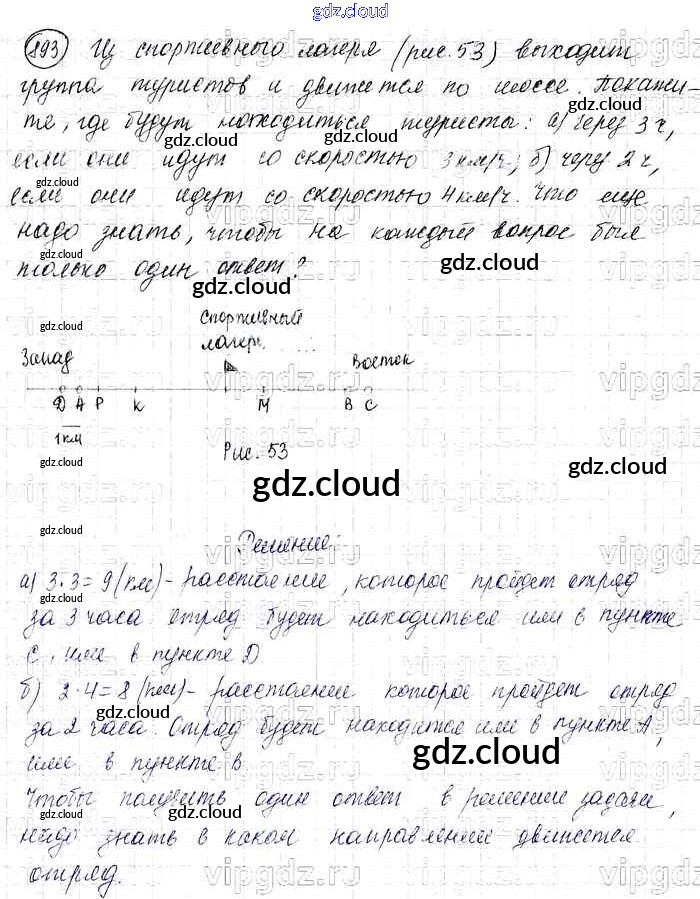 gdz.cloud
893) Из спортивного лагеря (рис. 53) выходит
группа туристов и движется по шоссе. Покажи-
те, где будут находиться туристы: а) через 3 ч,
если они идут со скоростью 3 км/ч; б) через 2 ч,
если они идут со скоростью 4 км/ч. Что ещё
надо знать, чтобы на каждый вопрос был
только один ответ?
Спортивный
лагерь
Запад Восток
D A P K M B C
1 км
Рис. 53
gdz.cloud
Решение:
а) 3·3=9 (км) - расстояние, которое пройдет отряд
за 3 часа. Отряд будет находиться или в пункте
C, или в пункте D
б) 2·4=8 (км) - расстояние которое пройдет отряд
за 2 часа. Отряд будет находится или в пункте A,
или в пункте в
gdz.cloud
Чтобы получить один ответ в решение задачи,
надо знать в каком направлении движется
отряд.
vipgdz.ru